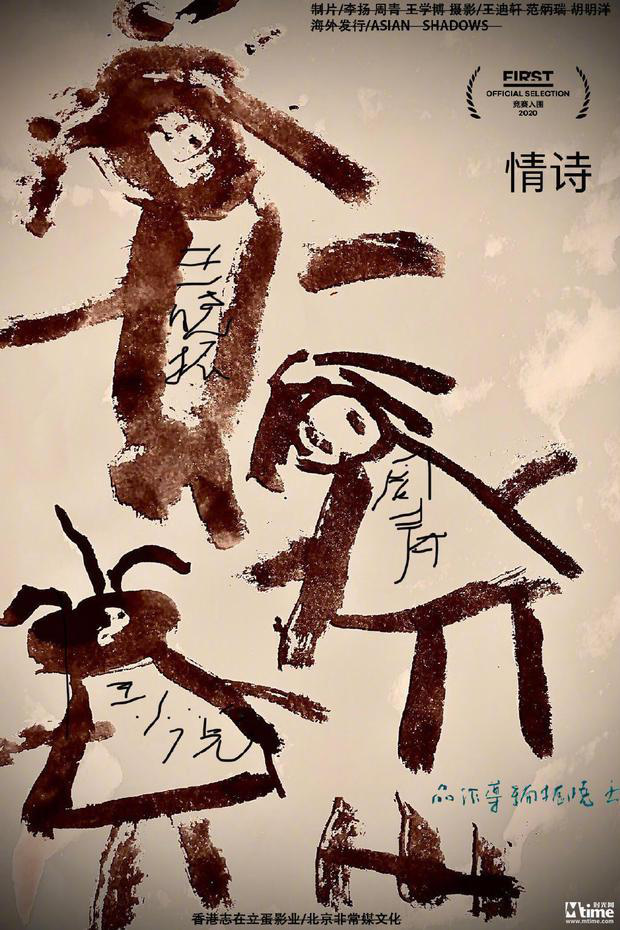 制片/李扬 周青 王学博 摄影/王迪轩 范炳瑞 胡明洋
海外发行/ASIAN SHADOWS
FIRST
OFFICIAL SELECTION
竞赛入围
2020
情诗
王晓振
周青
香港志在立蛋影业/北京非常媒文化
时光网
Mtime
www.mtime.com